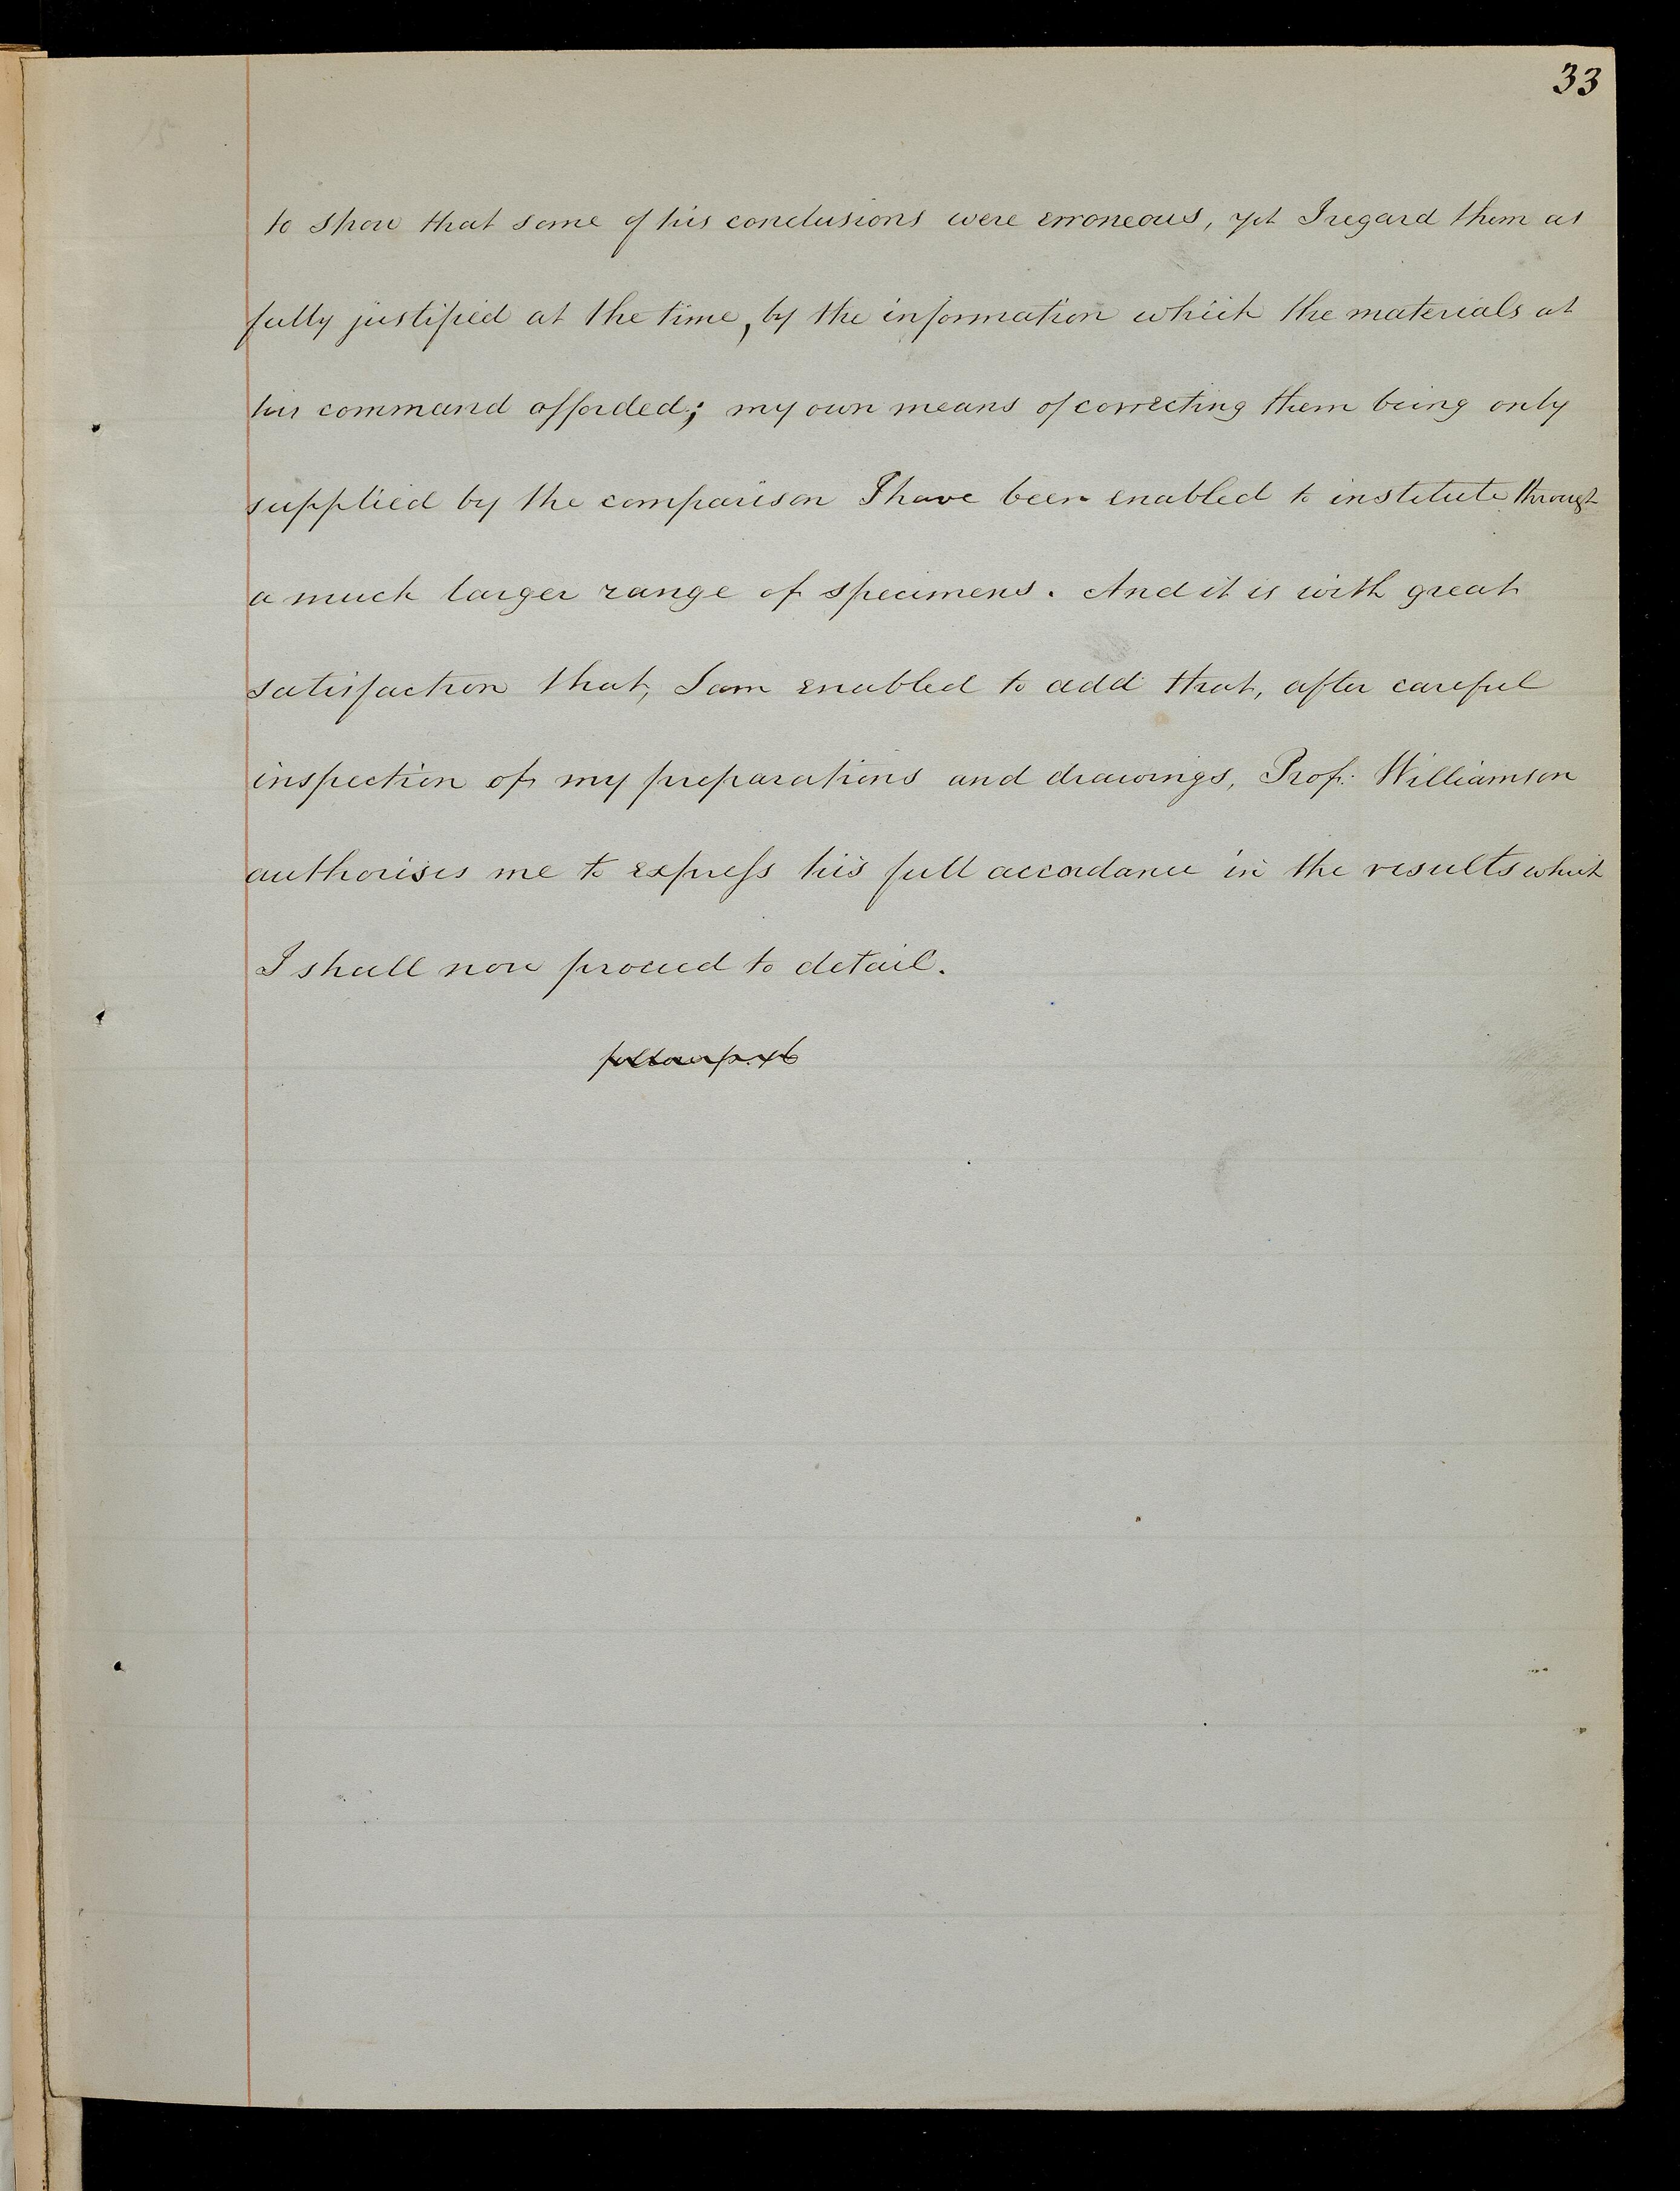 33
to show that some of his conclusions were erroneous, yet I regard them as
fully justified at the time, by the information which the materials at
his command afforded; my own means of correcting them being only
supplied by the comparison I have been enabled to institute through
a much larger range of specimens. And it is with great
satisfaction that, I am enabled to add that, after careful
inspection of my preparations and drawings, Prof. Williamson
authorises me to express his full accordance in the results which
I shall now proceed to detail.